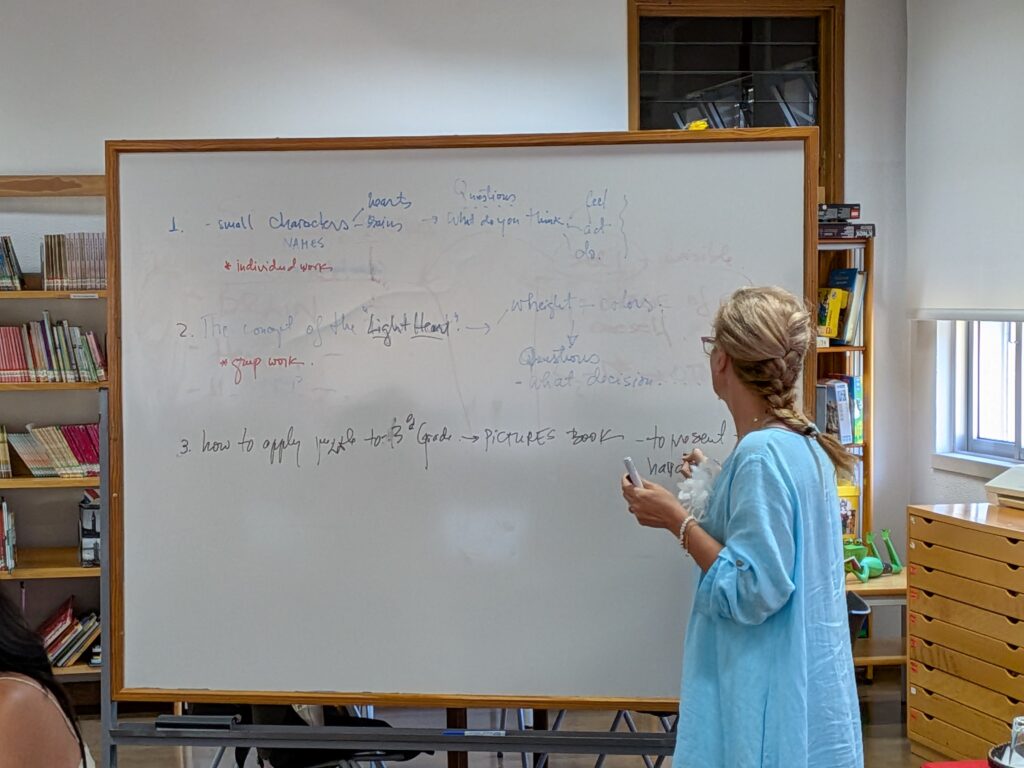 hearts Questions feel
1. - small characters brains → What do you think act
NAMES do.
* individual work
2. The concept of the "Light Heart" → wheight - colors.
* grup work. Questions
- What decision.
3. how to apply to 3ª Grade → PICTURES BOOK - to present